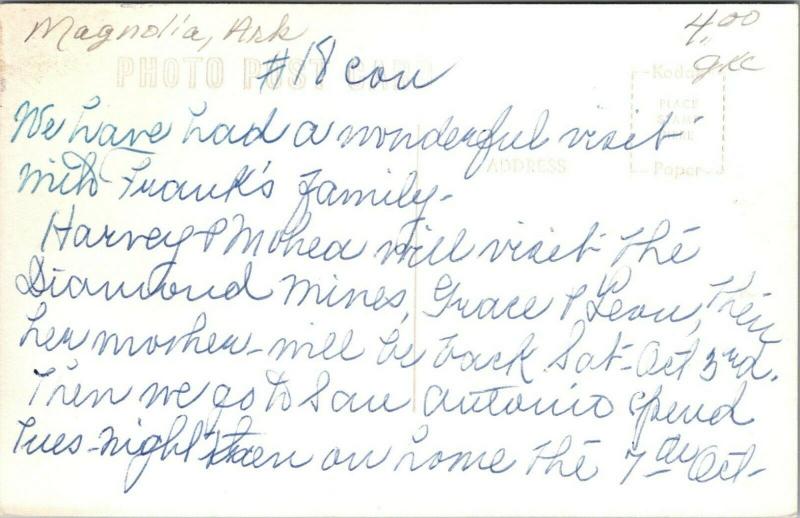 Magnolia, Ark
4.00
gKC
#18 con
PHOTO POST CARD
Kodak
PLACE
STAMP
HERE
Paper
ADDRESS
We have had a wonderful visit
with Frank's family-
Harvey & Mohea will visit the
Diamond Mines, Grace & Leon, then
her mother-will be back Sat-Oct 3rd.
Then we go to San Antonio spend
Tues-night then on home the 7th Oct-